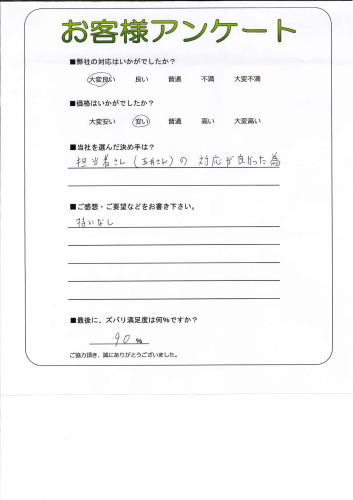 お客様アンケート
■弊社の対応はいかがでしたか?
大変良い 良い 普通 不満 大変不満
■価格はいかがでしたか?
大変安い 安い 普通 高い 大変高い
■当社を選んだ決め手は?
担当者さん(玉井さん)の 対応が良かった為
■ご感想・ご要望などをお書き下さい。
特になし
■最後に、ズバリ満足度は何%ですか?
90 %
ご協力頂き、誠にありがとうございました。